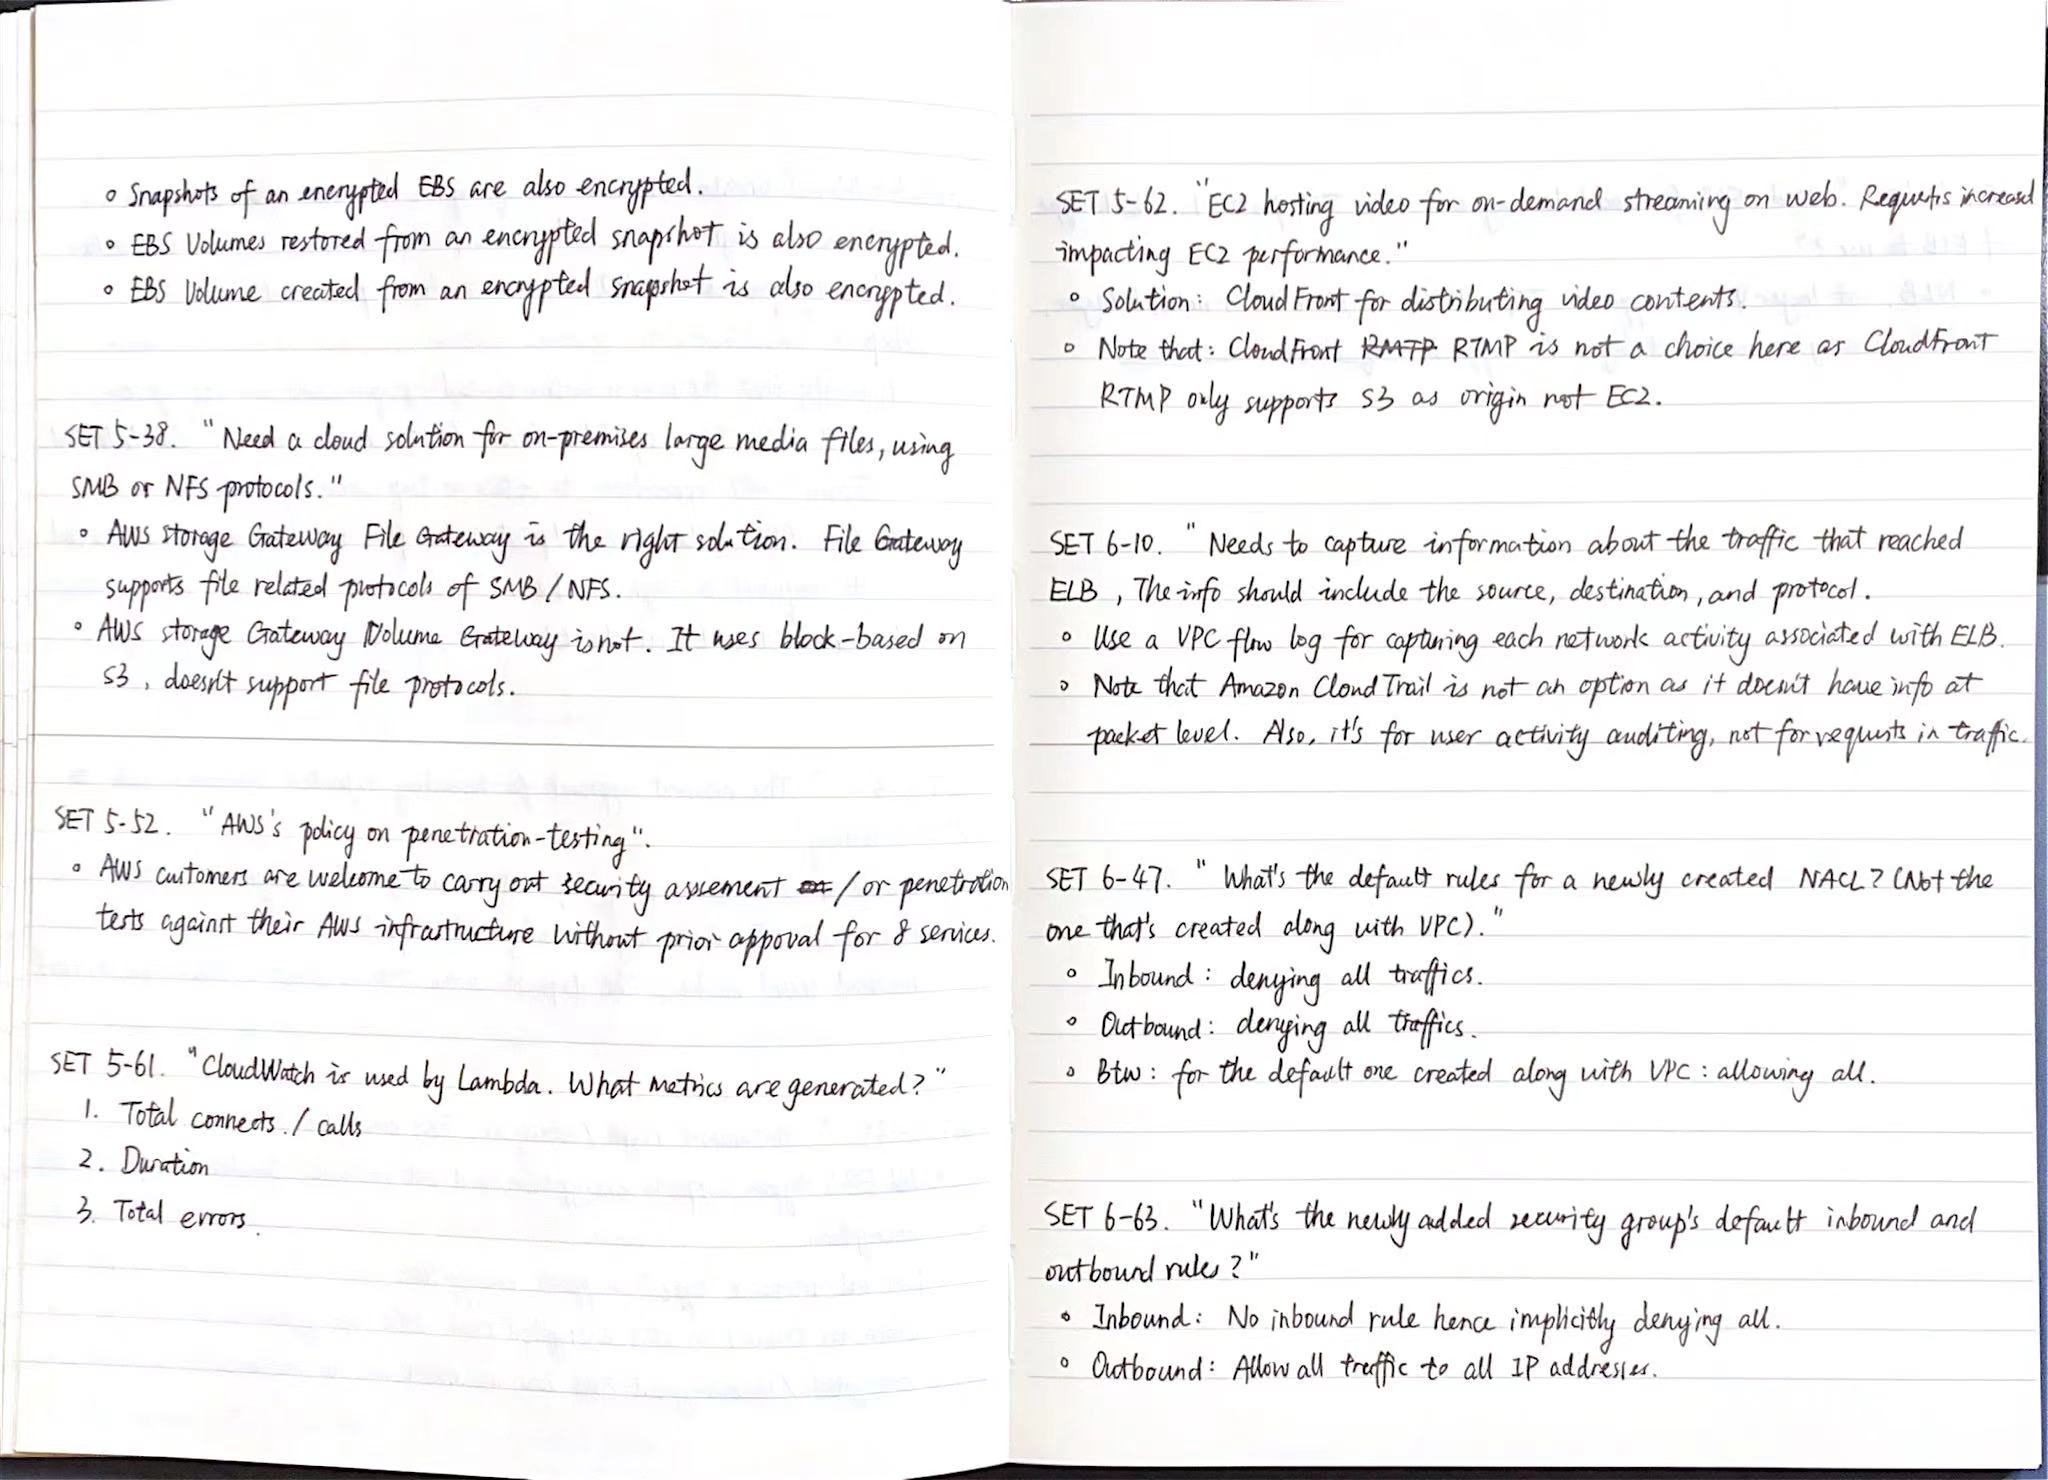 ◦ Snapshots of an encrypted EBS are also encrypted.
◦ EBS Volumes restored from an encrypted snapshot is also encrypted.
◦ EBS Volume created from an encrypted snapshot is also encrypted.
SET 5-38. "Need a cloud solution for on-premises large media files, using
SMB or NFS protocols."
◦ AWS storage Gateway File Gateway is the right solution. File Gateway
supports file related protocols of SMB/NFS.
◦ AWS storage Gateway Volume Gateway is not. It uses block-based on
S3, doesn't support file protocols.
SET 5-52. "AWS's policy on penetration-testing".
◦ AWS customers are welcome to carry out security assement / or penetration
tests against their AWS infrastructure without prior appoval for 8 services.
SET 5-61. "CloudWatch is used by Lambda. What metrics are generated?"
1. Total connects / calls
2. Duration
3. Total errors.
SET 5-62. "EC2 hosting video for on-demand streaming on web. Requests increased
impacting EC2 performance."
◦ Solution: CloudFront for distributing video contents.
◦ Note that: CloudFront RMTP RTMP is not a choice here as CloudFront
RTMP only supports S3 as origin not EC2.
SET 6-10. "Needs to capture information about the traffic that reached
ELB, The info should include the source, destination, and protocol.
◦ Use a VPC flow log for capturing each network activity associated with ELB.
◦ Note that Amazon CloudTrail is not an option as it doesn't have info at
packet level. Also, it's for user activity auditing, not for requests in traffic.
SET 6-47. "What's the default rules for a newly created NACL? (Not the
one that's created along with VPC)."
◦ Inbound: denying all traffics.
◦ Outbound: denying all traffics.
◦ Btw: for the default one created along with VPC: allowing all.
SET 6-63. "What's the newly added security group's default inbound and
outbound rules?"
◦ Inbound: No inbound rule hence implicitly denying all.
◦ Outbound: Allow all traffic to all IP addresses.